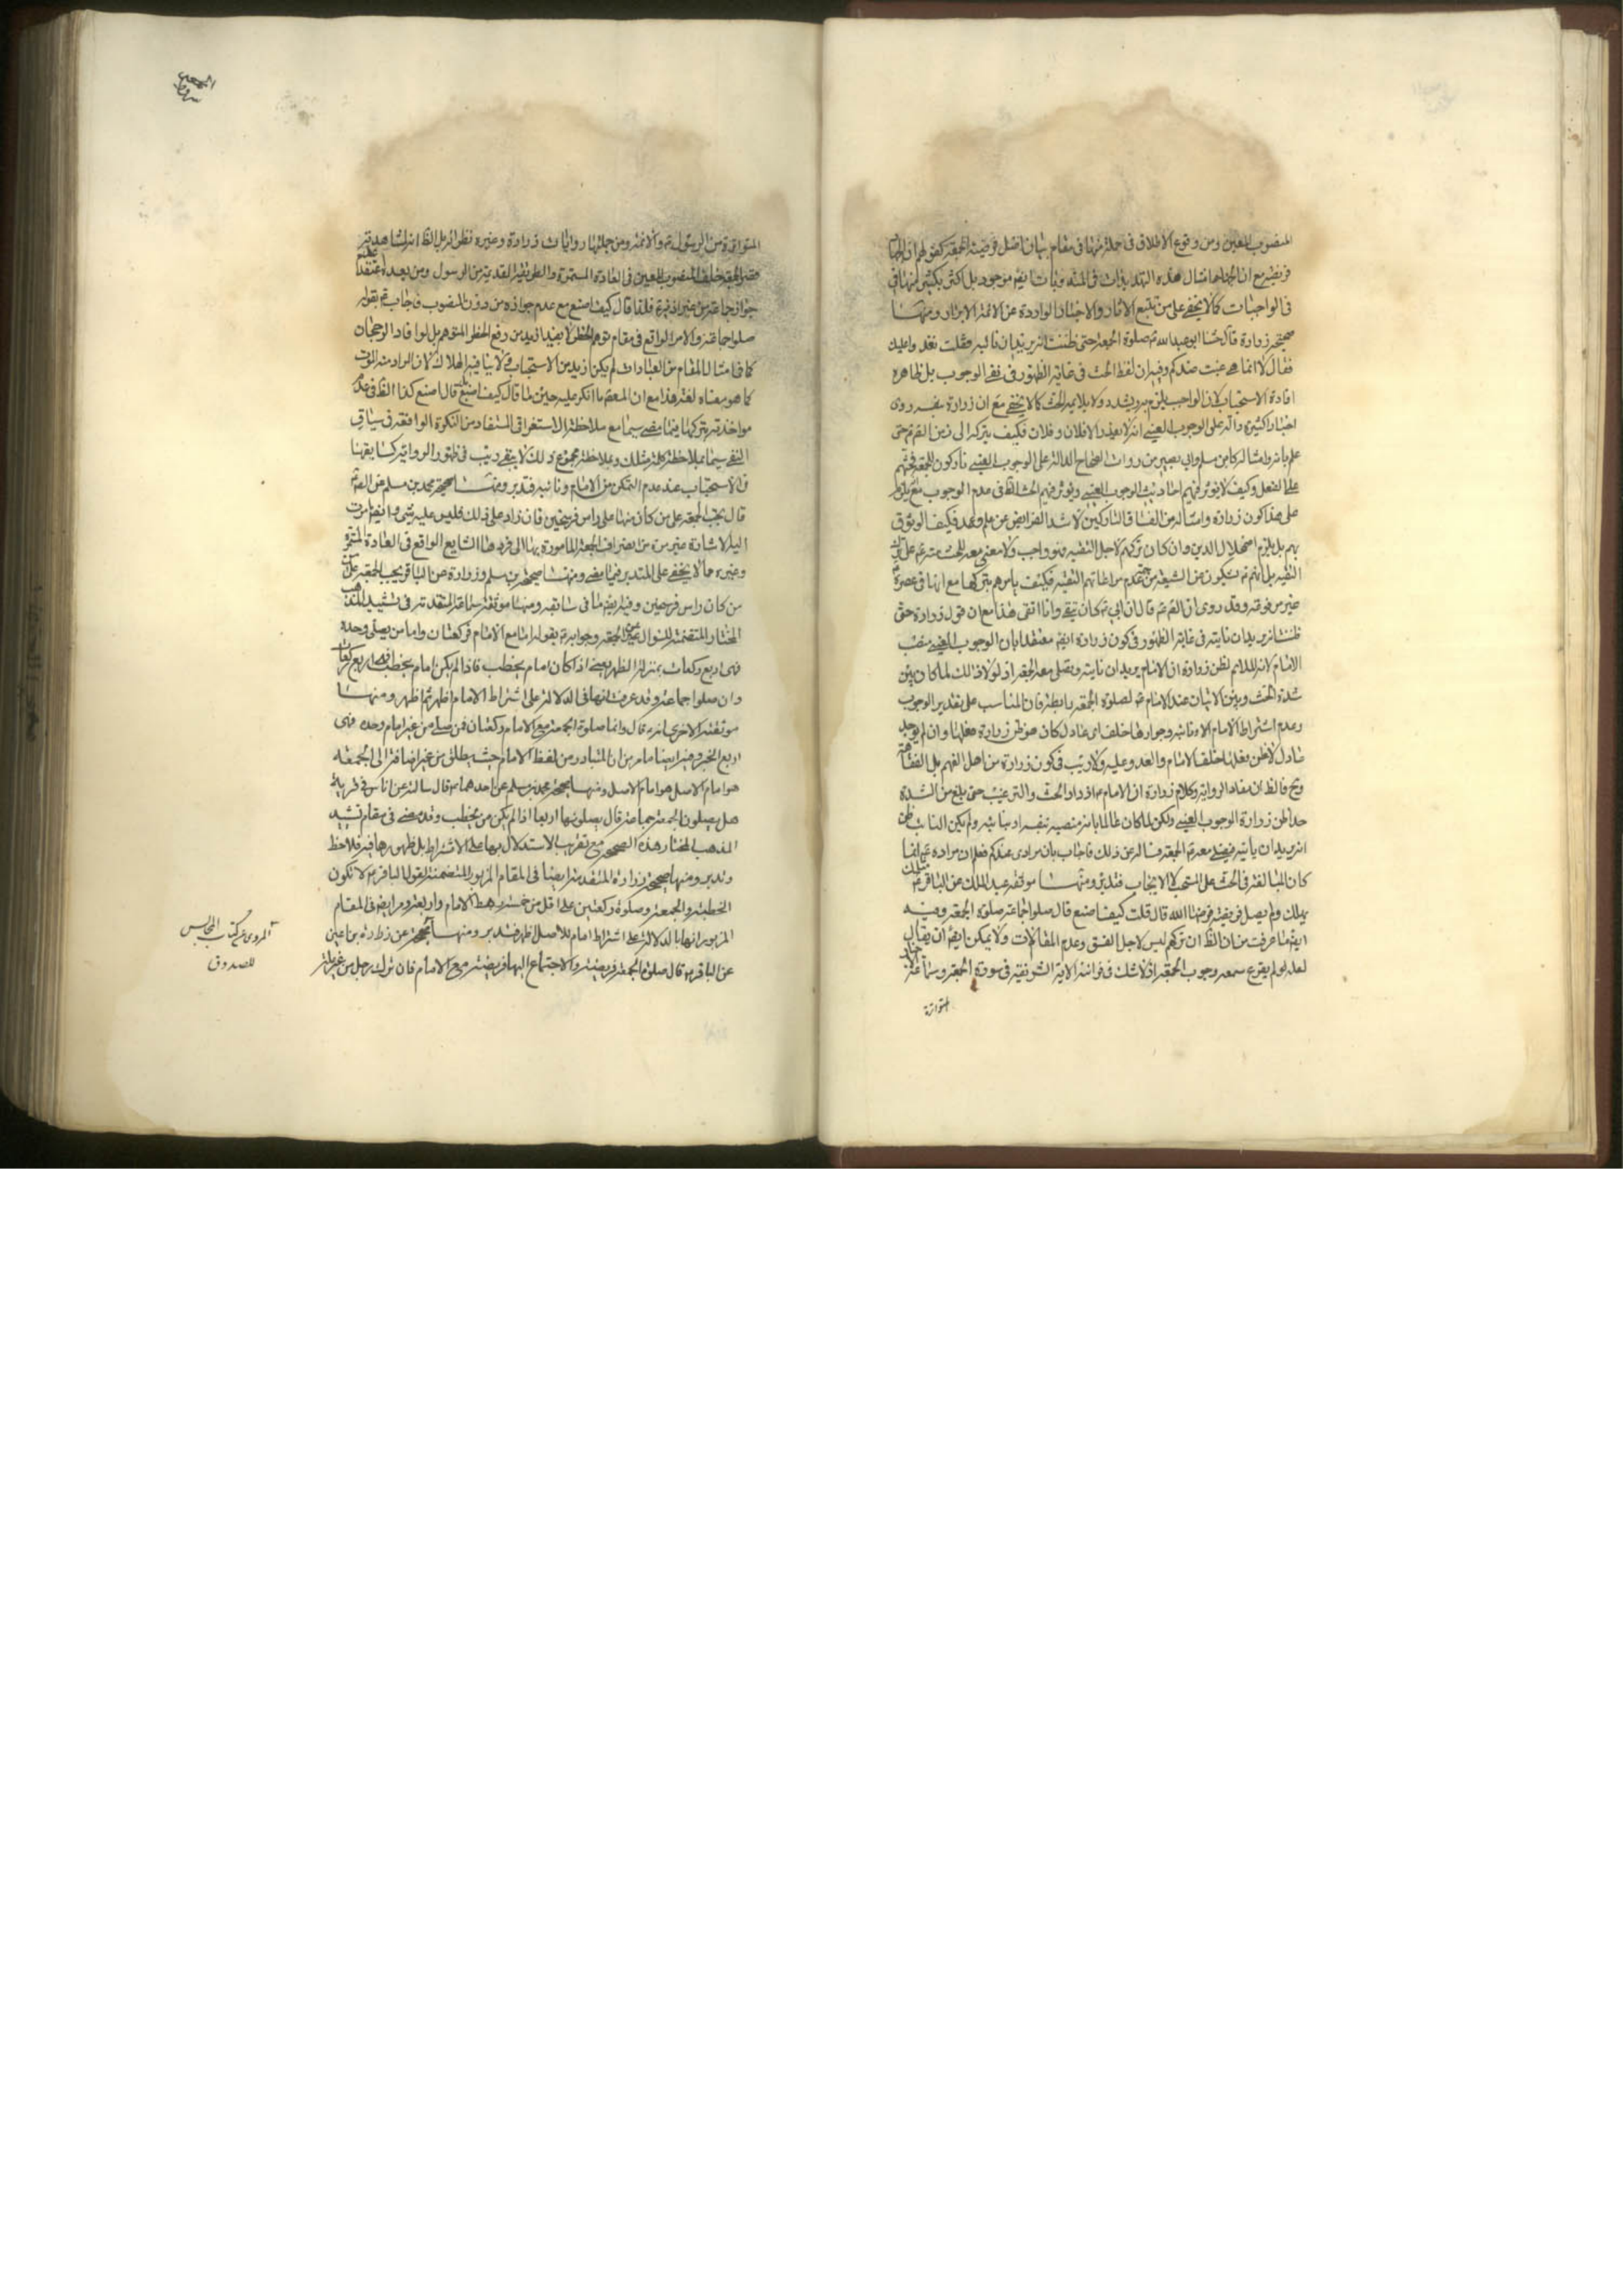 المنصوب المعين ومن وقوع الاطلاق فى جملة منها فى مقام بيان افضل فريضة الجمعة كقولهم ان الجهاد
فريضة مع ان امثال هذه التهديدات فى المندوبات ايضا موجود بل اكثر بكثير منها فى
فى الواجبات كما لا يخفى على من تتبع الاثار والاخبار الواردة عن الائمة الابرار ومنها
صحيحة زرارة قال حثنا ابو عبد الله ع صلوة الجمعة حتى ظننت انه يريد ان ناتيه فقلت نغدو عليك
فقال لا انما عنيت عندكم وفيه ان لفظ الحث فى غاية الظهور فى نفى الوجوب بل ظاهره
افادة الاستحباب لان الواجب يلزم به ويشدد ولا يلايمه الحث كما لا يخفى مع ان زرارة بنفسه روى
اخبارا كثيرة دالة على الوجوب العينى انه لا يعذر الا فلان وفلان فكيف يتركه الى زمن القم ع حتى
علم بانه وامثاله كابن مسلم وابى بصير من روات الصحاح الدالة على الوجوب العينى تاركون للجمعة فحثهم
على الفعل وكيف لا يؤثر فيهم احاديث الوجوب العينى ويؤثر فيهم الحث الظ فى عدم الوجوب مع يلزم
على هذا كون زرارة وامثاله من الفساق التاركين لاشد الفرايض عن علم وعمد فكيف الوثوق
بهم بل يلزم اضمحلال الدين وان كان تركهم لاجل التقية فهو واجب ولا معنى معه للحث منه ع على ترك
التقية بل انهم ع يشكون عن الشيعة من عدم مراعاتهم التقية فكيف يامرهم بتركها مع انها فى عصره
غير مرفوعة وقد روى ان القم ع قال ان ابى ع كان يتقى وانا اتقى هذا مع ان قول زرارة حتى
ظننت انه يريد ان ناتيه فى غاية الظهور فى كون زرارة ايضا معتقدا بان الوجوب العينى منصب
الامام لانه الملائم لظن زرارة ان الامام يريد ان ناتيه ونصلى معه الجمعة اذ لولا ذلك لما كان بين
شدة الحث وبين الاتيان عند الامام ع لصلوة الجمعة رابطة فان المناسب على تقدير الوجوب
وعدم اشتراط الامام او نائبه وجوازها خلف اى عادل كان هو ظن زرارة فعلها وان لم يوجد
عادل لا ظن بفعلها خلف الامام والغدو عليه ولا ريب فى كون زرارة من اهل الفهم بل الفقاهة
وح فالظ ان مفاد الرواية وكلام زرارة ان الامام ع ازداد الحث والترغيب حتى بلغ من الشدة
حدا ظن زرارة الوجوب العينى ولكن لما كان عالما بانه منصبه بنفسه او بنائبه ولم يكن النائب ظن
انه يريد ان ياتيه فيصلى معه ع الجمعة فسأله عن ذلك فاجاب بان مرادى عندكم فعلم ان مراده ع انما
كان المبالغة فى الحث على المستحب لا الايجاب فتدبر ومنها موثقة عبد الملك عن الباقر ع قال مثلك
يهلك ولم يصل فريضة فرضها الله قال قلت كيف اصنع قال صلوا جماعة صلوة الجمعة وفيه
ايضا ما عرفت من ان الظ ان تركهم ليس لاجل الفسق وعدم المبالات ولا يمكن ايضا ان يقال
لعله لم يقرع سمعه وجوب الجمعة اذ لا شك فى قرائته الاية الشريفة فى سورة الجمعة وسماعه الاخبار
المتواترة
الجمعة
المتواترة من الرسول ص والائمة ومن جملتها روايات زرارة وغيره نظرائه بل الظ انه لمشاهدته
فعل الجمعة خلف المنصوب المعين فى العادة المستمرة والطريقة القديمة من الرسول ومن بعده اعتقد عدم
جواز جماعة من غير اذنه ع فلذا قال كيف اصنع مع عدم جوازه من دون المنصوب فاجاب ع بقوله
صلوا جماعة والامر الواقع فى مقام توهم الحظر لا يفيد ازيد من رفع الحظر المتوهم بل لو افاد الرجحان
كما فى امثال المقام من العبادات لم يكن ازيد من الاستحباب ولا ينافيه الهلاك لان المراد منه الموت
كما هو معناه لغة هذا مع ان المعصوم ما انكر عليه حين ما قال كيف اصنع قال اصنع كذا الظ فى عدم
مواخذته بتركها فيما مضى سيما مع ملاحظة الاستغراق المستفاد من النكرة الواقعة فى سياق
النفى سيما بملاحظة كلمة مثلك وبملاحظة مجموع ذلك لا يبقى ريب فى ظهور الرواية كسابقها
فى الاستحباب عند عدم التمكن من الامام ونائبه فتدبر ومنها صحيحة محمد بن مسلم عن القم ع
قال تجب الجمعة على من كان منها على راس فرسخين فان زاد على ذلك فليس عليه شىء وفيه ما مرت
اليه الاشارة غير مرة من انصراف الجمعة المامورة بها الى فردها الشايع الواقع فى العادة المستمرة
وغيره مما لا يخفى على المتدبر فيما مضى ومنها صحيحة بن مسلم وزرارة عن الباقر تجب الجمعة على كل
من كان راس فرسخين وفيه ايضا ما فى سابقه ومنها موثقة سماعة المتقدمة فى تشييد المذهب
المختار المتضمنة للسؤال عن الجمعة وجوابه ع بقوله اما مع الامام فركعتان واما من يصلى وحده
فهى اربع ركعات بمنزلة الظهر يعنى اذا كان امام يخطب فاذا لم يكن امام يخطب فهى اربع ركعات
وان صلوا جماعة وقد عرفت انها فى الدلالة على اشتراط الامام اظهر ثم اظهر ومنها
موثقته الاخرى انه قال وانما صلوة الجمعة مع الامام ركعتان فمن صلى من غير امام وحده فهى
اربع الخبر وفيه ايضا ما مر من ان المتبادر من لفظ الامام حيث يطلق من غير اضافة الى الجمعة
هو امام الاصل هو امام الاصل ومنها صحيحة محمد بن مسلم عن احدهما ع قال سالته عن اناس فى قرية
هل يصلون الجمعة جماعة قال يصلونها اربعا اذا لم يكن من يخطب وقد مضى فى مقام تشييد
المذهب المختار هذه الصحيحة مع تقريب الاستدلال بها على الاشتراط بل ظهورها فيه فلاحظ
وتدبر ومنها صحيحة زرارة المتقدمة ايضا فى المقام المزبور المتضمنة لقول الباقر ع لا تكون
الخطبة والجمعة وصلوة ركعتين على اقل من خمسة رهط الامام واربعة ومر ايضا فى المقام
المزبور انها بالدلالة على اشتراط امام الاصل اظهر فتدبر ومنها صحيحة عن زرارة بن اعين
عن الباقر ع قال صلوة الجمعة فريضة والاجتماع اليها فريضة مع الامام فان ترك رجل من غير علة
المروى عن كتاب المجالس
للصدوق